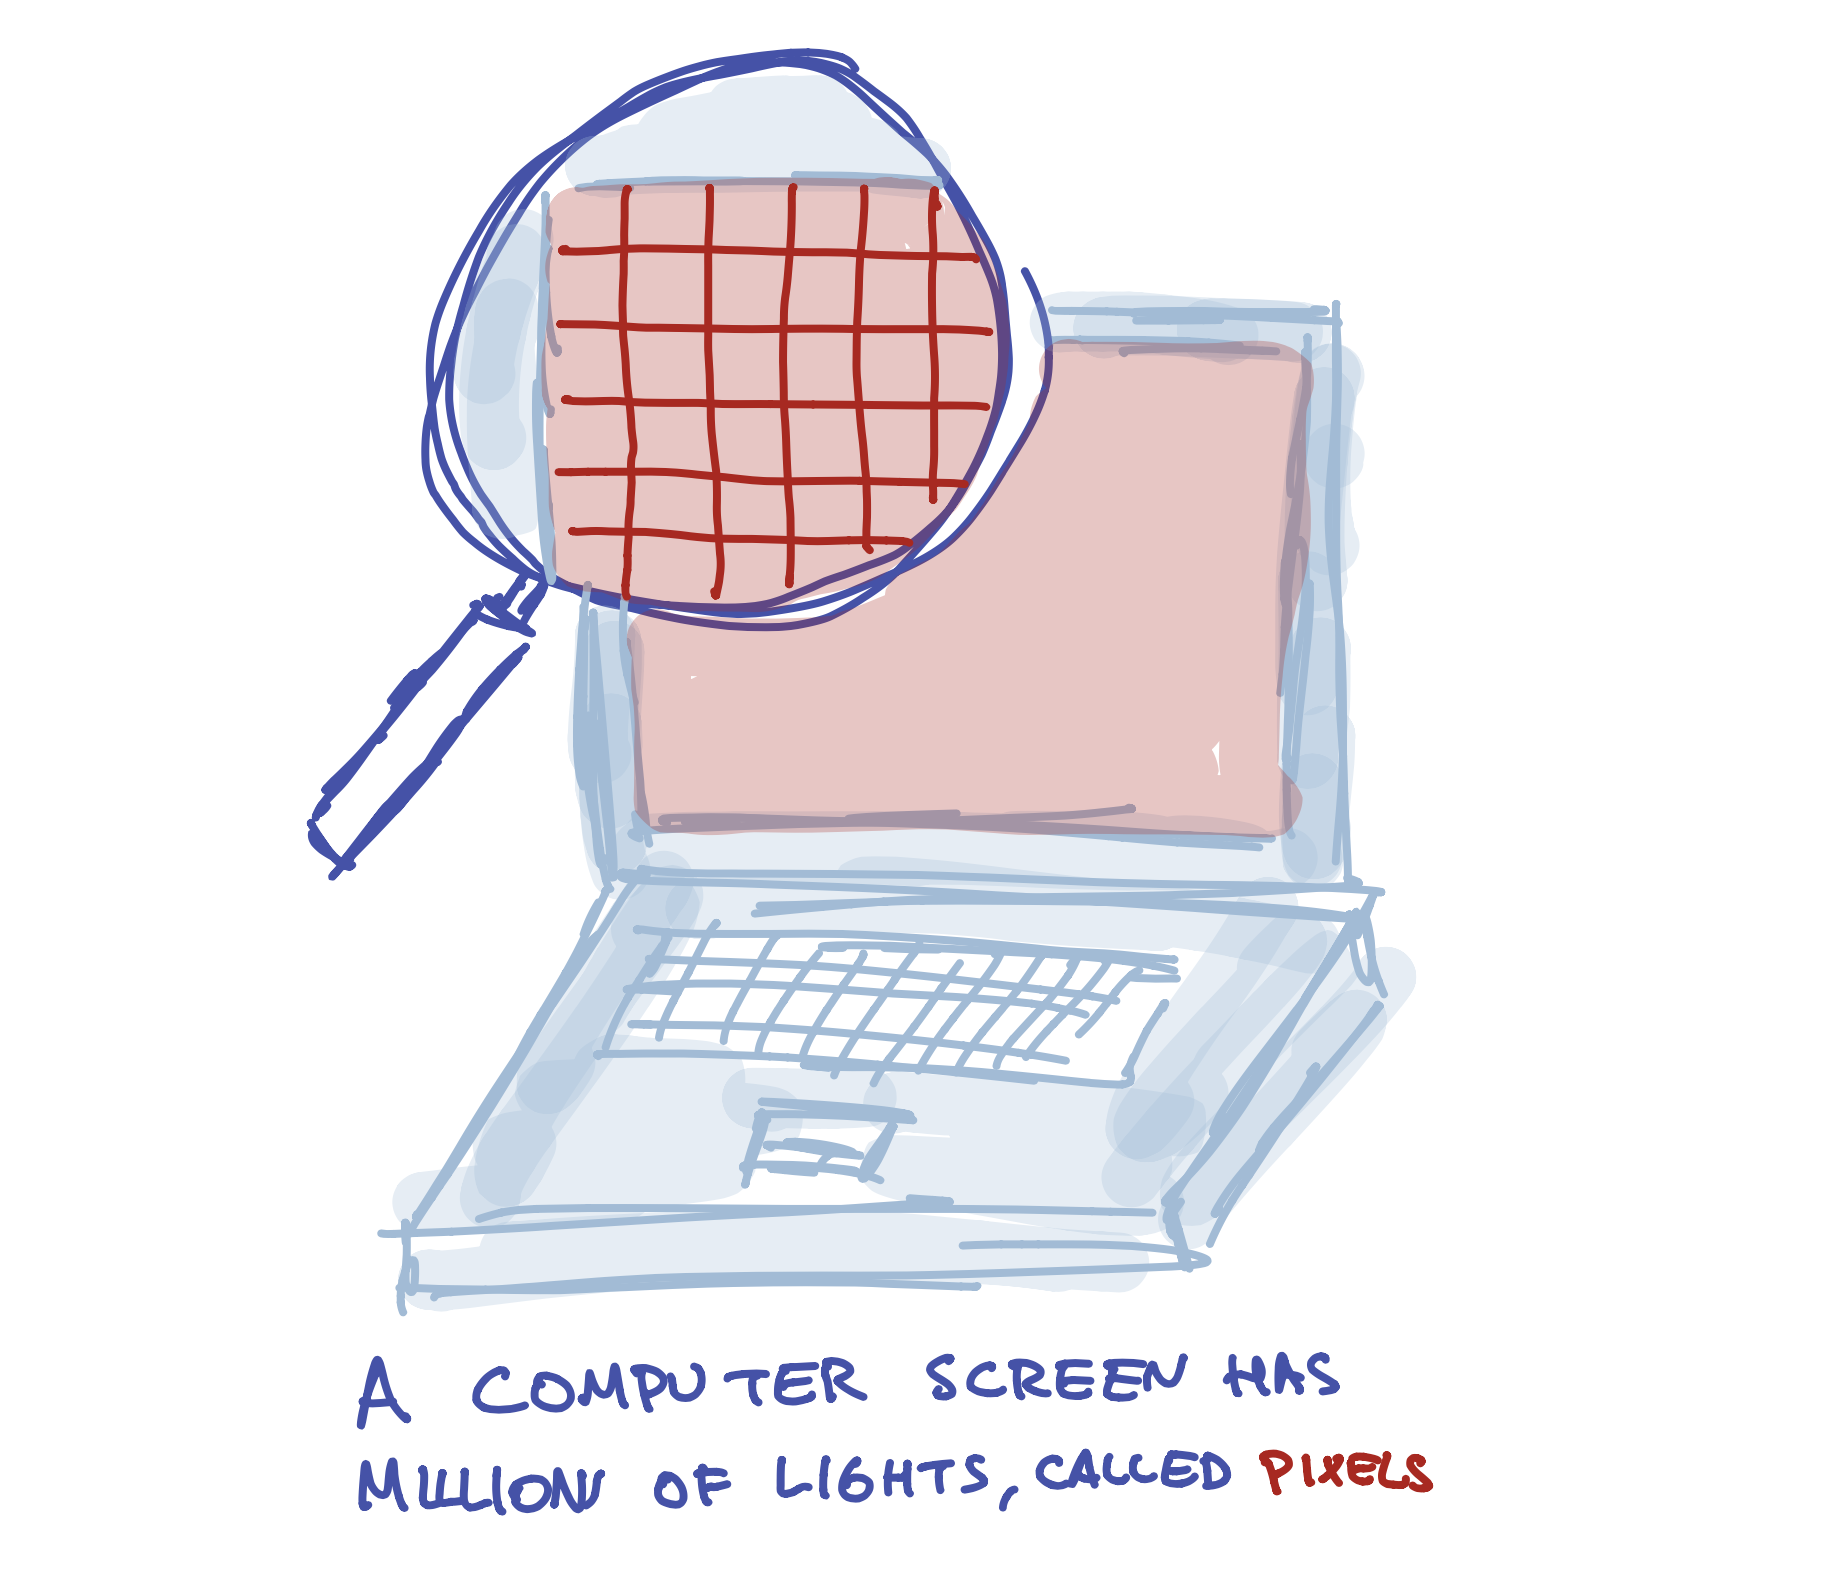 A COMPUTER SCREEN HAS
MILLIONS OF LIGHTS, CALLED PIXELS